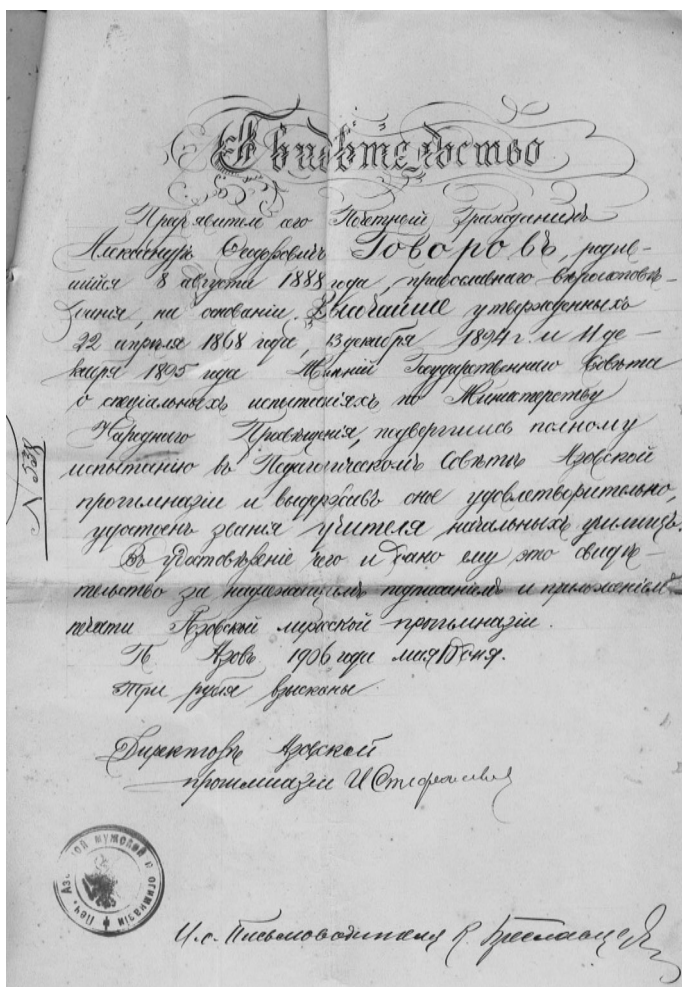 Свидѣтельство
Предъявитель сего Почетный Гражданинъ
Александръ Ѳедоровичъ Говоровъ, родив-
шійся 8 августа 1888 года, православнаго вѣроисповѣ-
данія, на основаніи Высочайше утвержденныхъ
22 апрѣля 1868 года, 13 декабря 1894 г. и 11 де-
кабря 1895 года Мнѣній Государственнаго Совѣта
о спеціальныхъ испытаніяхъ по Министерству
Народнаго Просвѣщенія, подвергшись полному
испытанію въ Педагогическомъ Совѣтѣ Азовской
прогимназіи и выдержавъ оное удовлетворительно,
удостоенъ званія учителя начальныхъ училищъ.
Въ удостовѣреніе чего и дано ему это свидѣ-
тельство за надлежащимъ подписаніемъ и приложеніемъ
печати Азовской мужской прогимназіи.
Г. Азовъ 1906 года мая дня.
Три рубля взысканы.
№ 538
Директоръ Азовской
прогимназіи И
Печ. Азовской мужской прогимназіи
И. о. Письмоводителя